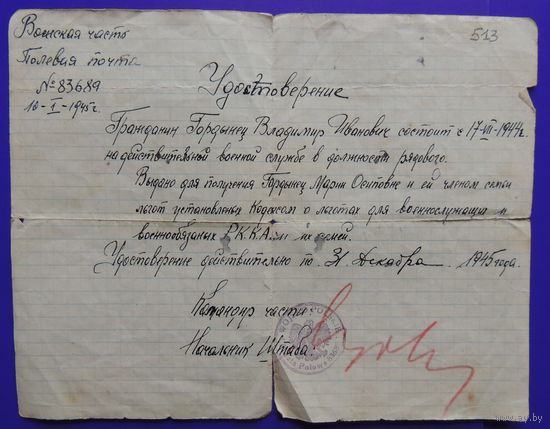 Воинская часть
Полевая почта
№ 83689
10-I-1945г.
513
Удостоверение
Гражданин Гордынец Владимир Иванович состоит с 17-VII-1944г.
на действительной военной службе в должности рядового.
Выдано для получения Гордынец Марии Осиповне и её членом семьи
льгот установлены Кодексом о льготах для военнослужащих и
военнообязаных Р.К.К.А. и их семей.
Удостоверение действительно по 31 Декабря 1945 года.
Командир части:
Начальник Штаба:
ay.by